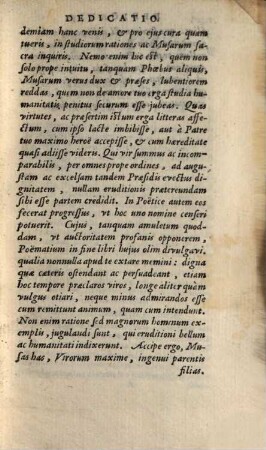 DEDICATIO.
demiam hanc venis, & pro ejus cura quam
tueris, in studiorum rationes ac Musarum sa-
cra inquiris. Nemo enim hoc est, quem non
solo prope intuitu, tanquam Phœbus aliquis,
Musarum verus dux & præses, lubentiorem
reddas, quem non de amore tuo erga studia hu-
manitatis penitus securum esse jubeas. Quas
virtutes, ac præsertim istum erga litteras affe-
ctum, cum ipso lacte imbibisse, aut à Patre
tuo maximo heroë accepisse, & cum hæreditate
quasi adiisse videris. Qui vir summus ac incom-
parabilis, per omnes prope ordines, ad augu-
stam ac excelsam tandem Præsidis evectus di-
gnitatem, nullam eruditionis prætereundam
sibi esse partem credidit. In Poëtice autem eos
fecerat progressus, vt hoc uno nomine censeri
potuerit. Cujus, tanquam amuletum quod-
dam, vt auctoritatem profanis opponerem,
Poëmatium in fine libri hujus olim divulgavi,
qualia nonnulla apud te extare memini: digna
quæ cæteris ostendant ac persuadeant, etiam
hoc tempore præclaros viros, longe aliter quàm
vulgus otiari, neque minus admirandos esse
cum remittunt animum, quam cum intendunt.
Non enim ratione sed magnorum hominum ex-
emplis, jugulandi sunt, qui eruditioni bellum
ac humanitati indixerunt. Accipe ergo, Mu-
sas has, Virorum maxime, ingenui parentis
filias.